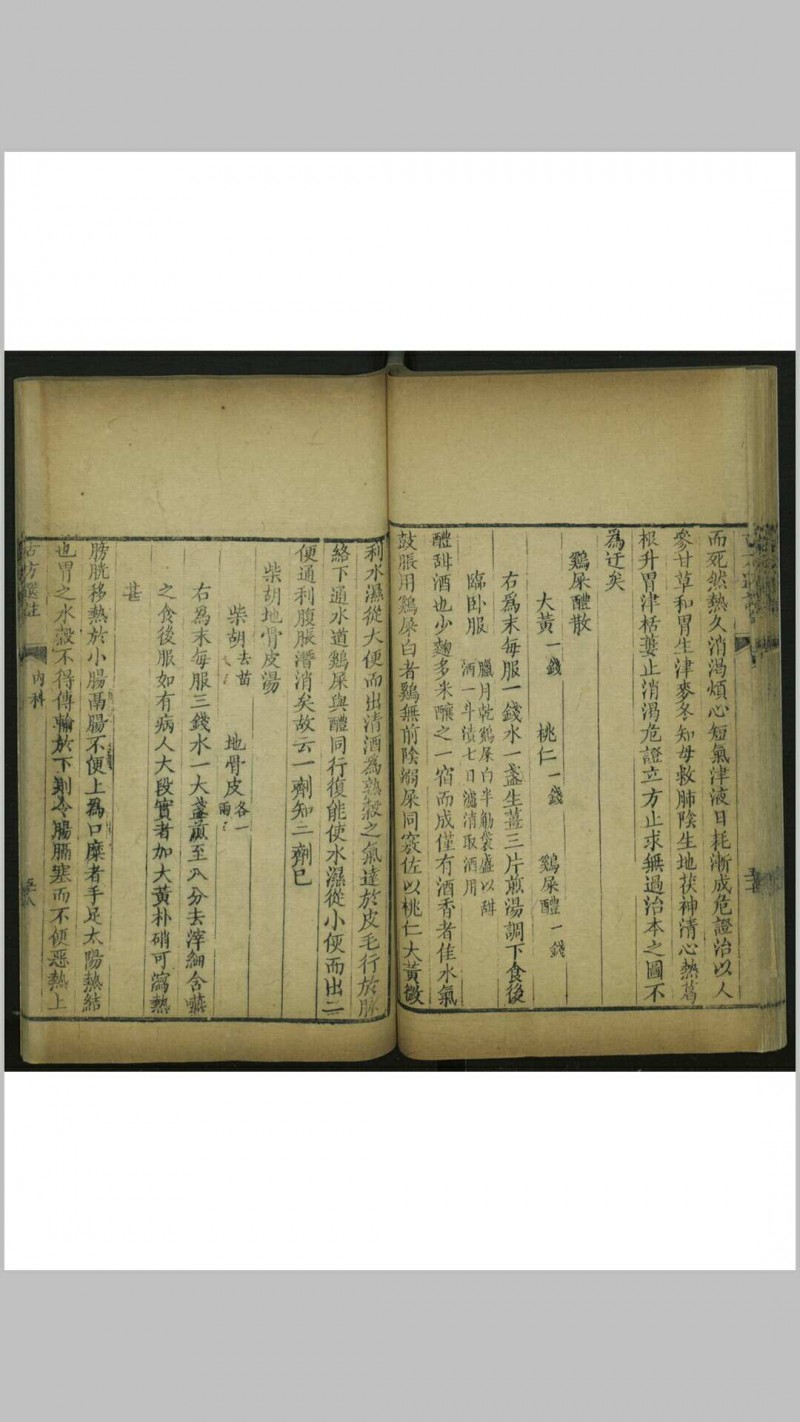 而死然熱久消渴煩心短氣津液日耗漸成危證治以人
參甘草和胃生津麥冬知母救肺陰生地茯神清心熱葛
根升胃津栝蔞止消渴危證立方止求無過治本之圖不
為迂矣
鷄屎醴散
大黃一錢 桃仁一錢 鷄屎醴一錢
右為末每服一錢水一盞生薑三片煎湯調下食後
臨卧服 臘月乾鷄屎白半觔袋盛以甜
酒一斗漬七日濾清取酒用
醴甜酒也少麴多米釀之一宿而成僅有酒香者佳水氣
鼓脹用鷄屎白者鷄無前陰溺屎同竅佐以桃仁大黃微
利水濕從大便而出清酒為熟穀之氣達於皮毛行於脉
絡下通水道鷄屎與醴同行復能使水濕從小便而出二
便通利腹脹潛消矣故云一劑知二劑已
柴胡地骨皮湯
柴胡去苗 地骨皮各一
兩
右為末每服三錢水一大盞煎至八分去滓細含嚥
之食後服如有病人大段實者加大黃朴硝可瀉熱
甚
膀胱移熱於小腸鬲腸不便上為口糜者手足太陽熱結
也胃之水穀不得傳輸於下則令腸膈塞而不便惡熱上
古方選註
內科